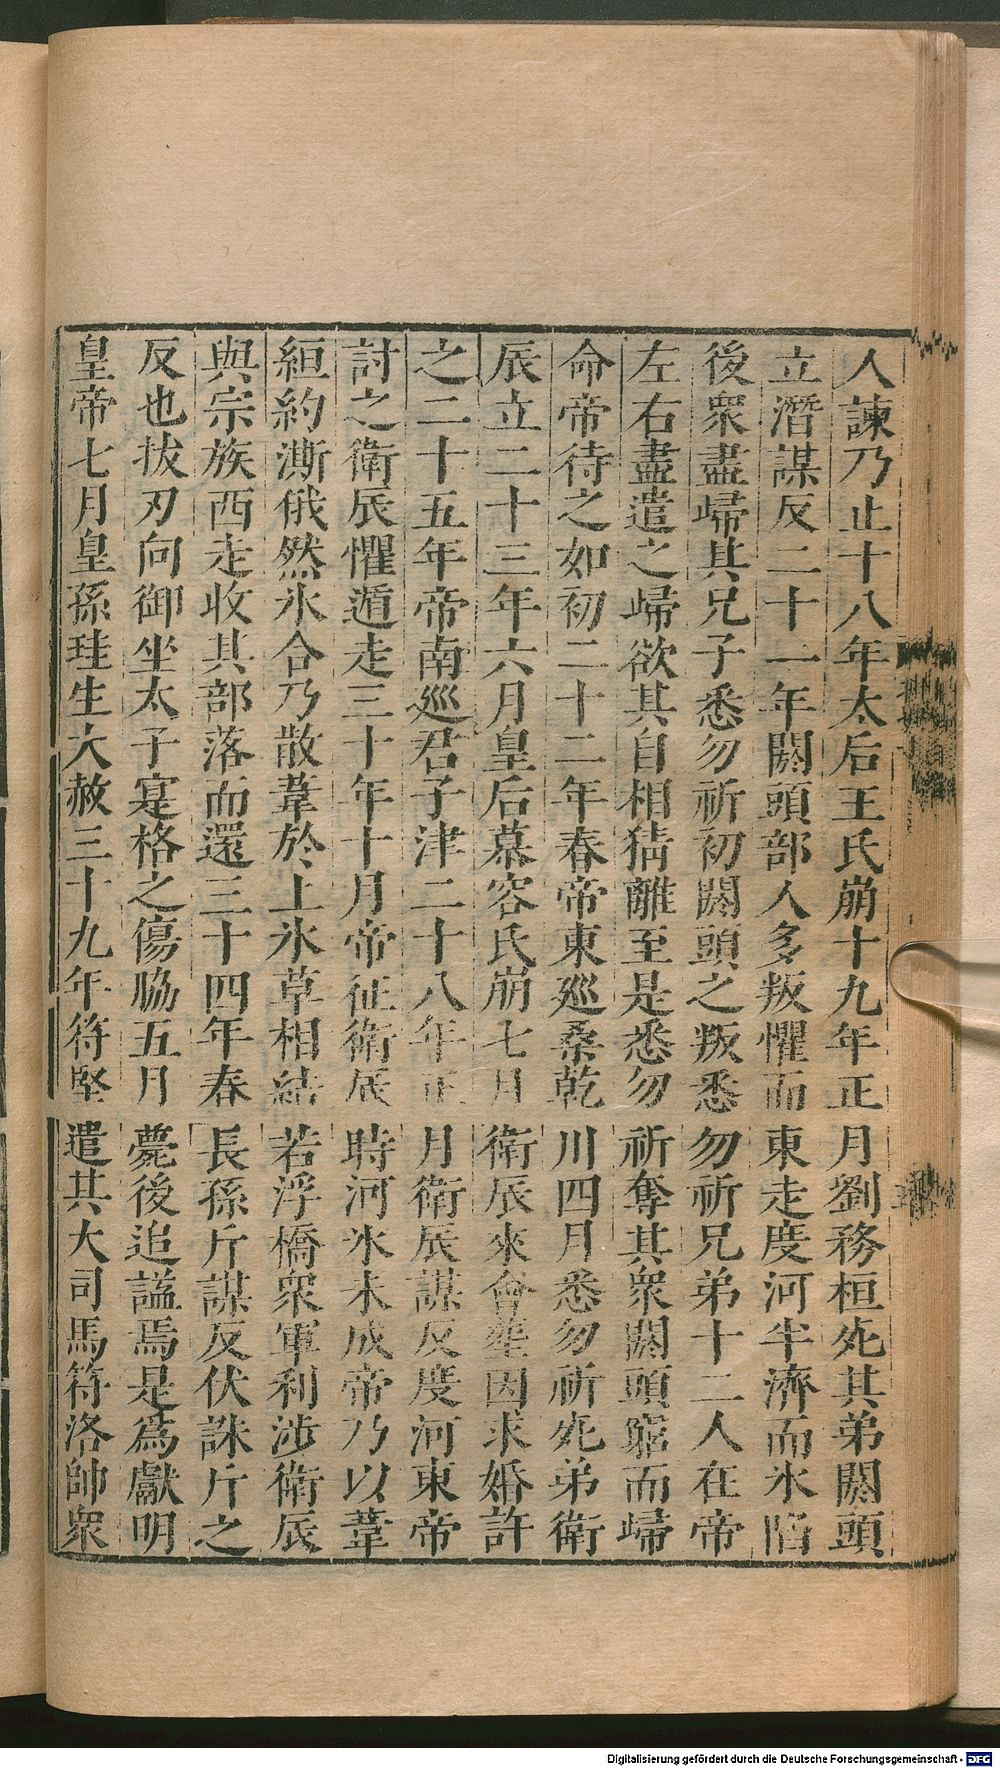 人諫乃止十八年太后王氏崩十九年正月劉務桓死其弟閼頭
立潛謀反二十一年閼頭部人多叛懼而東走度河半濟而氷陷
後衆盡歸其兄子悉勿祈初閼頭之叛悉勿祈兄弟十二人在帝
左右盡遣之歸欲其自相猜離至是悉勿祈奪其衆閼頭窮而歸
命帝待之如初二十二年春帝東廵桑乾川四月悉勿祈死弟衛
辰立二十三年六月皇后慕容氏崩七月衛辰來會塟因求婚許
之二十五年帝南廵君子津二十八年正月衛辰謀反度河東帝
討之衛辰懼遁走三十年十月帝征衛辰時河氷未成帝乃以葦
絙約澌俄然氷合乃散葦於上氷草相結若浮橋衆軍利涉衛辰
與宗族西走收其部落而還三十四年春長孫斤謀反伏誅斤之
反也拔刃向御坐太子寔格之傷脇五月薨後追謚焉是爲獻明
皇帝七月皇孫珪生大赦三十九年符堅遣其大司馬符洛帥衆
Digitalisierung gefördert durch die Deutsche Forschungsgemeinschaft - DFG